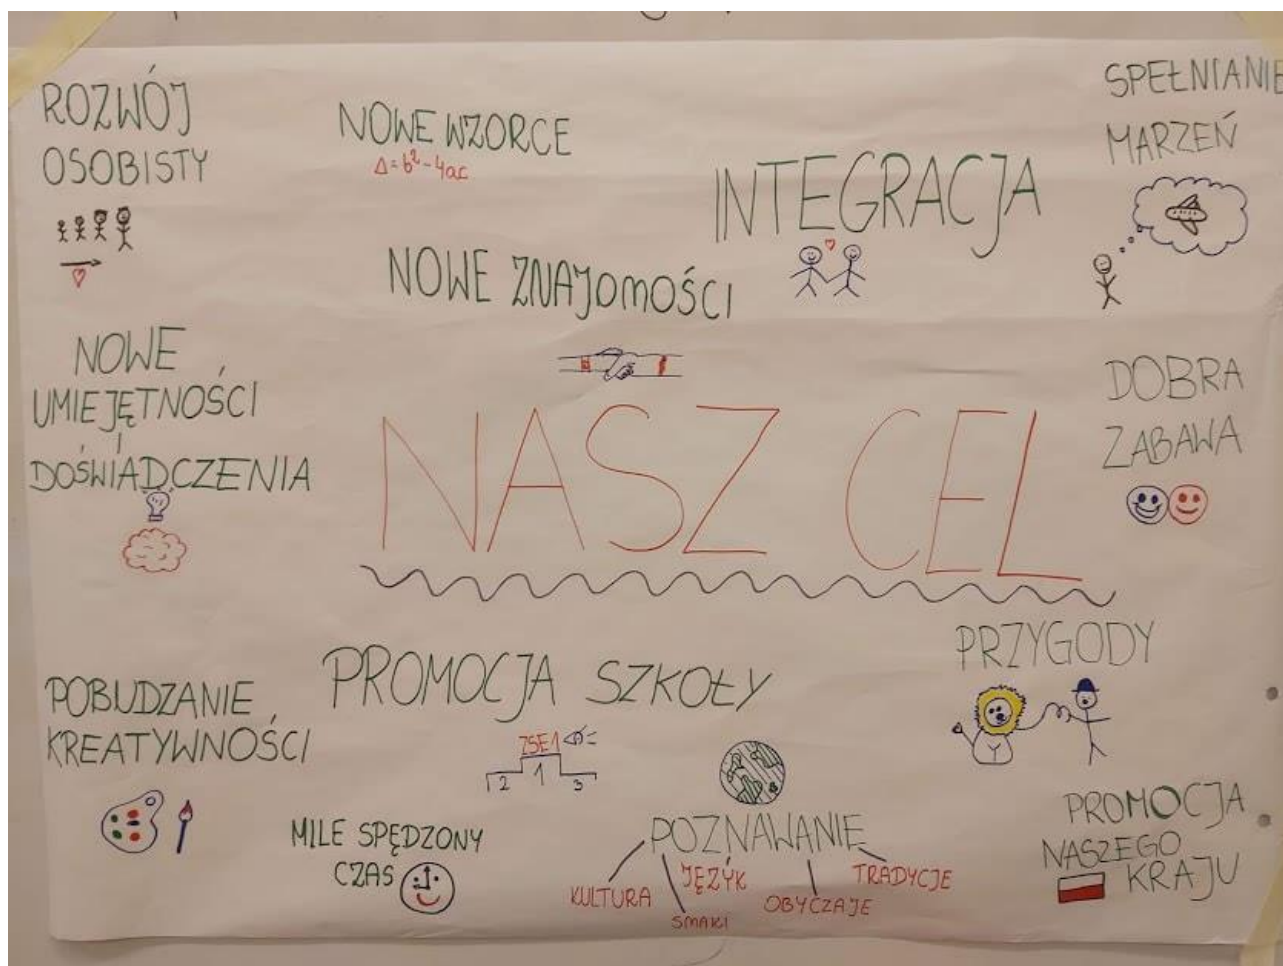 ROZWÓJ
OSOBISTY
NOWE WZORCE
Δ=b²-4ac
INTEGRACJA
SPEŁNIANIE
MARZEŃ
NOWE ZNAJOMOŚCI
NOWE
UMIEJĘTNOŚCI
I
DOŚWIADCZENIA
DOBRA
ZABAWA
NASZ CEL
PRZYGODY
PROMOCJA SZKOŁY
ZSE1
2 1 3
POBUDZANIE
KREATYWNOŚCI
MILE SPĘDZONY
CZAS
POZNAWANIE
KULTURA
SMAKI
JĘZYK
OBYCZAJE
TRADYCJE
PROMOCJA
NASZEGO
KRAJU